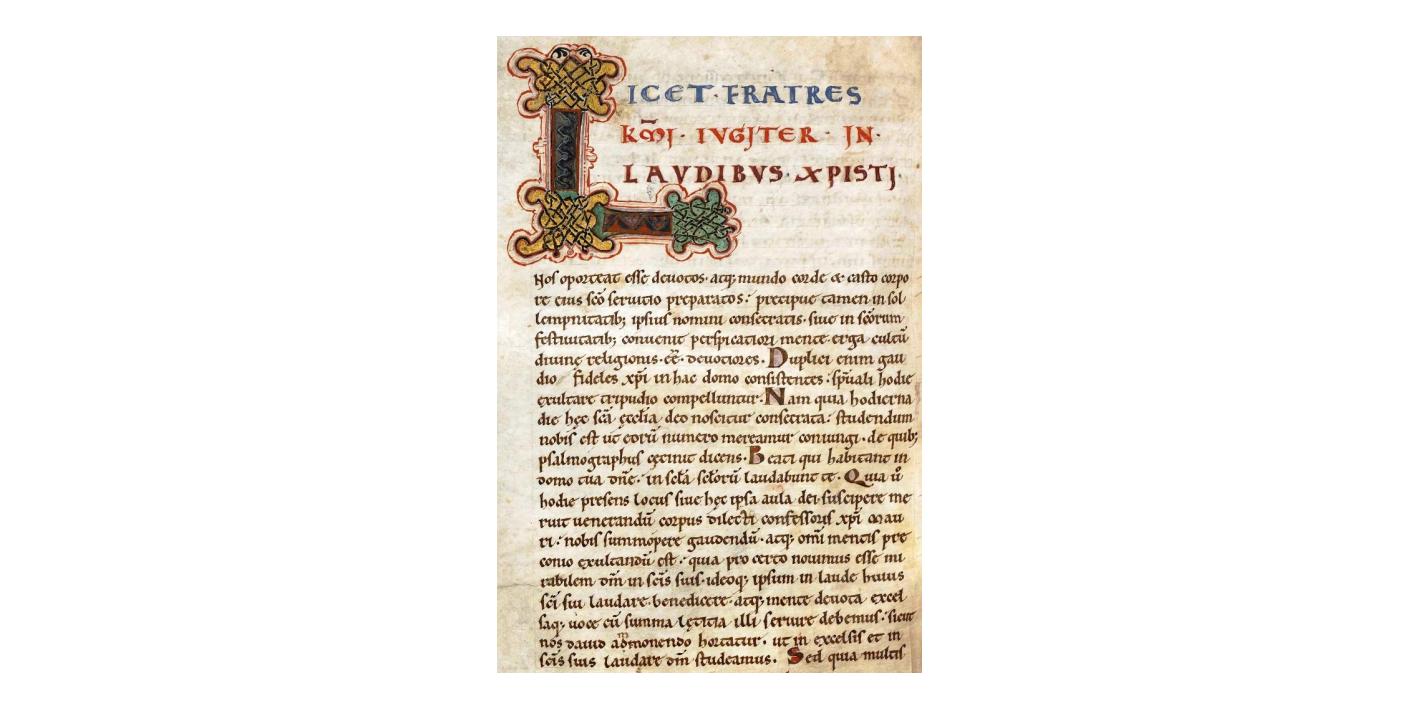 LICET · FRATRES
KM̃I · IVGITER · IN ·
LAVDIBVS · XPISTI ·
Nos oporteat esse deuotos · atq; mundo corde & casto corpo
re eius sc̄o seruitio preparatos : precipue tamen in sol
lempnitatib; ipsius nomini consecratis · siue in sc̄orum
festiuitatib; conuenit perspicatiori mente erga cultū
diuine religionis · eē · deuotiores · Duplici enim gau
dio fideles xp̄i in hac domo consistentes : sp̄uali hodie
exultare tripudio compelluntur · Nam quia hodierna
die hęc sc̄a ęcclīa deo noscitur consecrata : studendum
nobis est ut eorū numero mereamur coniungi · de quib;
psalmographus cęcinit dicens · Beati qui habitant in
domo tua dn̄e : in scl̄a scl̄orū laudabunt te · Quia ū
hodie presens locus siue hęc ipsa aula dei suscipere me
ruit uenerandū corpus dilecti confessoris xp̄i Mau
ri : nobis summopere gaudendū · atq; om̄i mentis pre
conio exultandū est : quia pro certo nouimus esse mi
rabilem dm̄ in sc̄is suis · ideoq; ipsum in laude huius
sc̄i sui laudare · benedicere · atq; mente deuota excel
saq; uoce cū summa lętitia illi seruire debemus : sicut
nos dauid admonendo hortatur · ut in excelsis et in
sc̄is suis laudare dm̄ studeamus · Sed quia multis